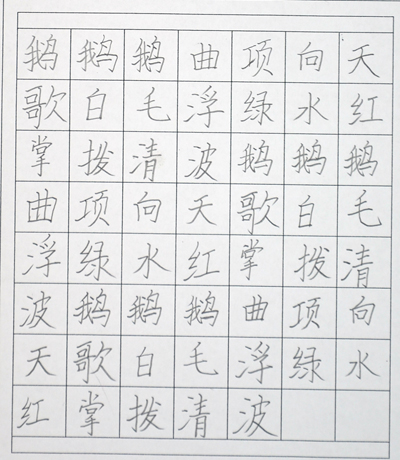 鹅鹅鹅曲项向天
歌白毛浮绿水红
掌拨清波鹅鹅鹅
曲项向天歌白毛
浮绿水红掌拨清
波鹅鹅鹅曲项向
天歌白毛浮绿水
红掌拨清波